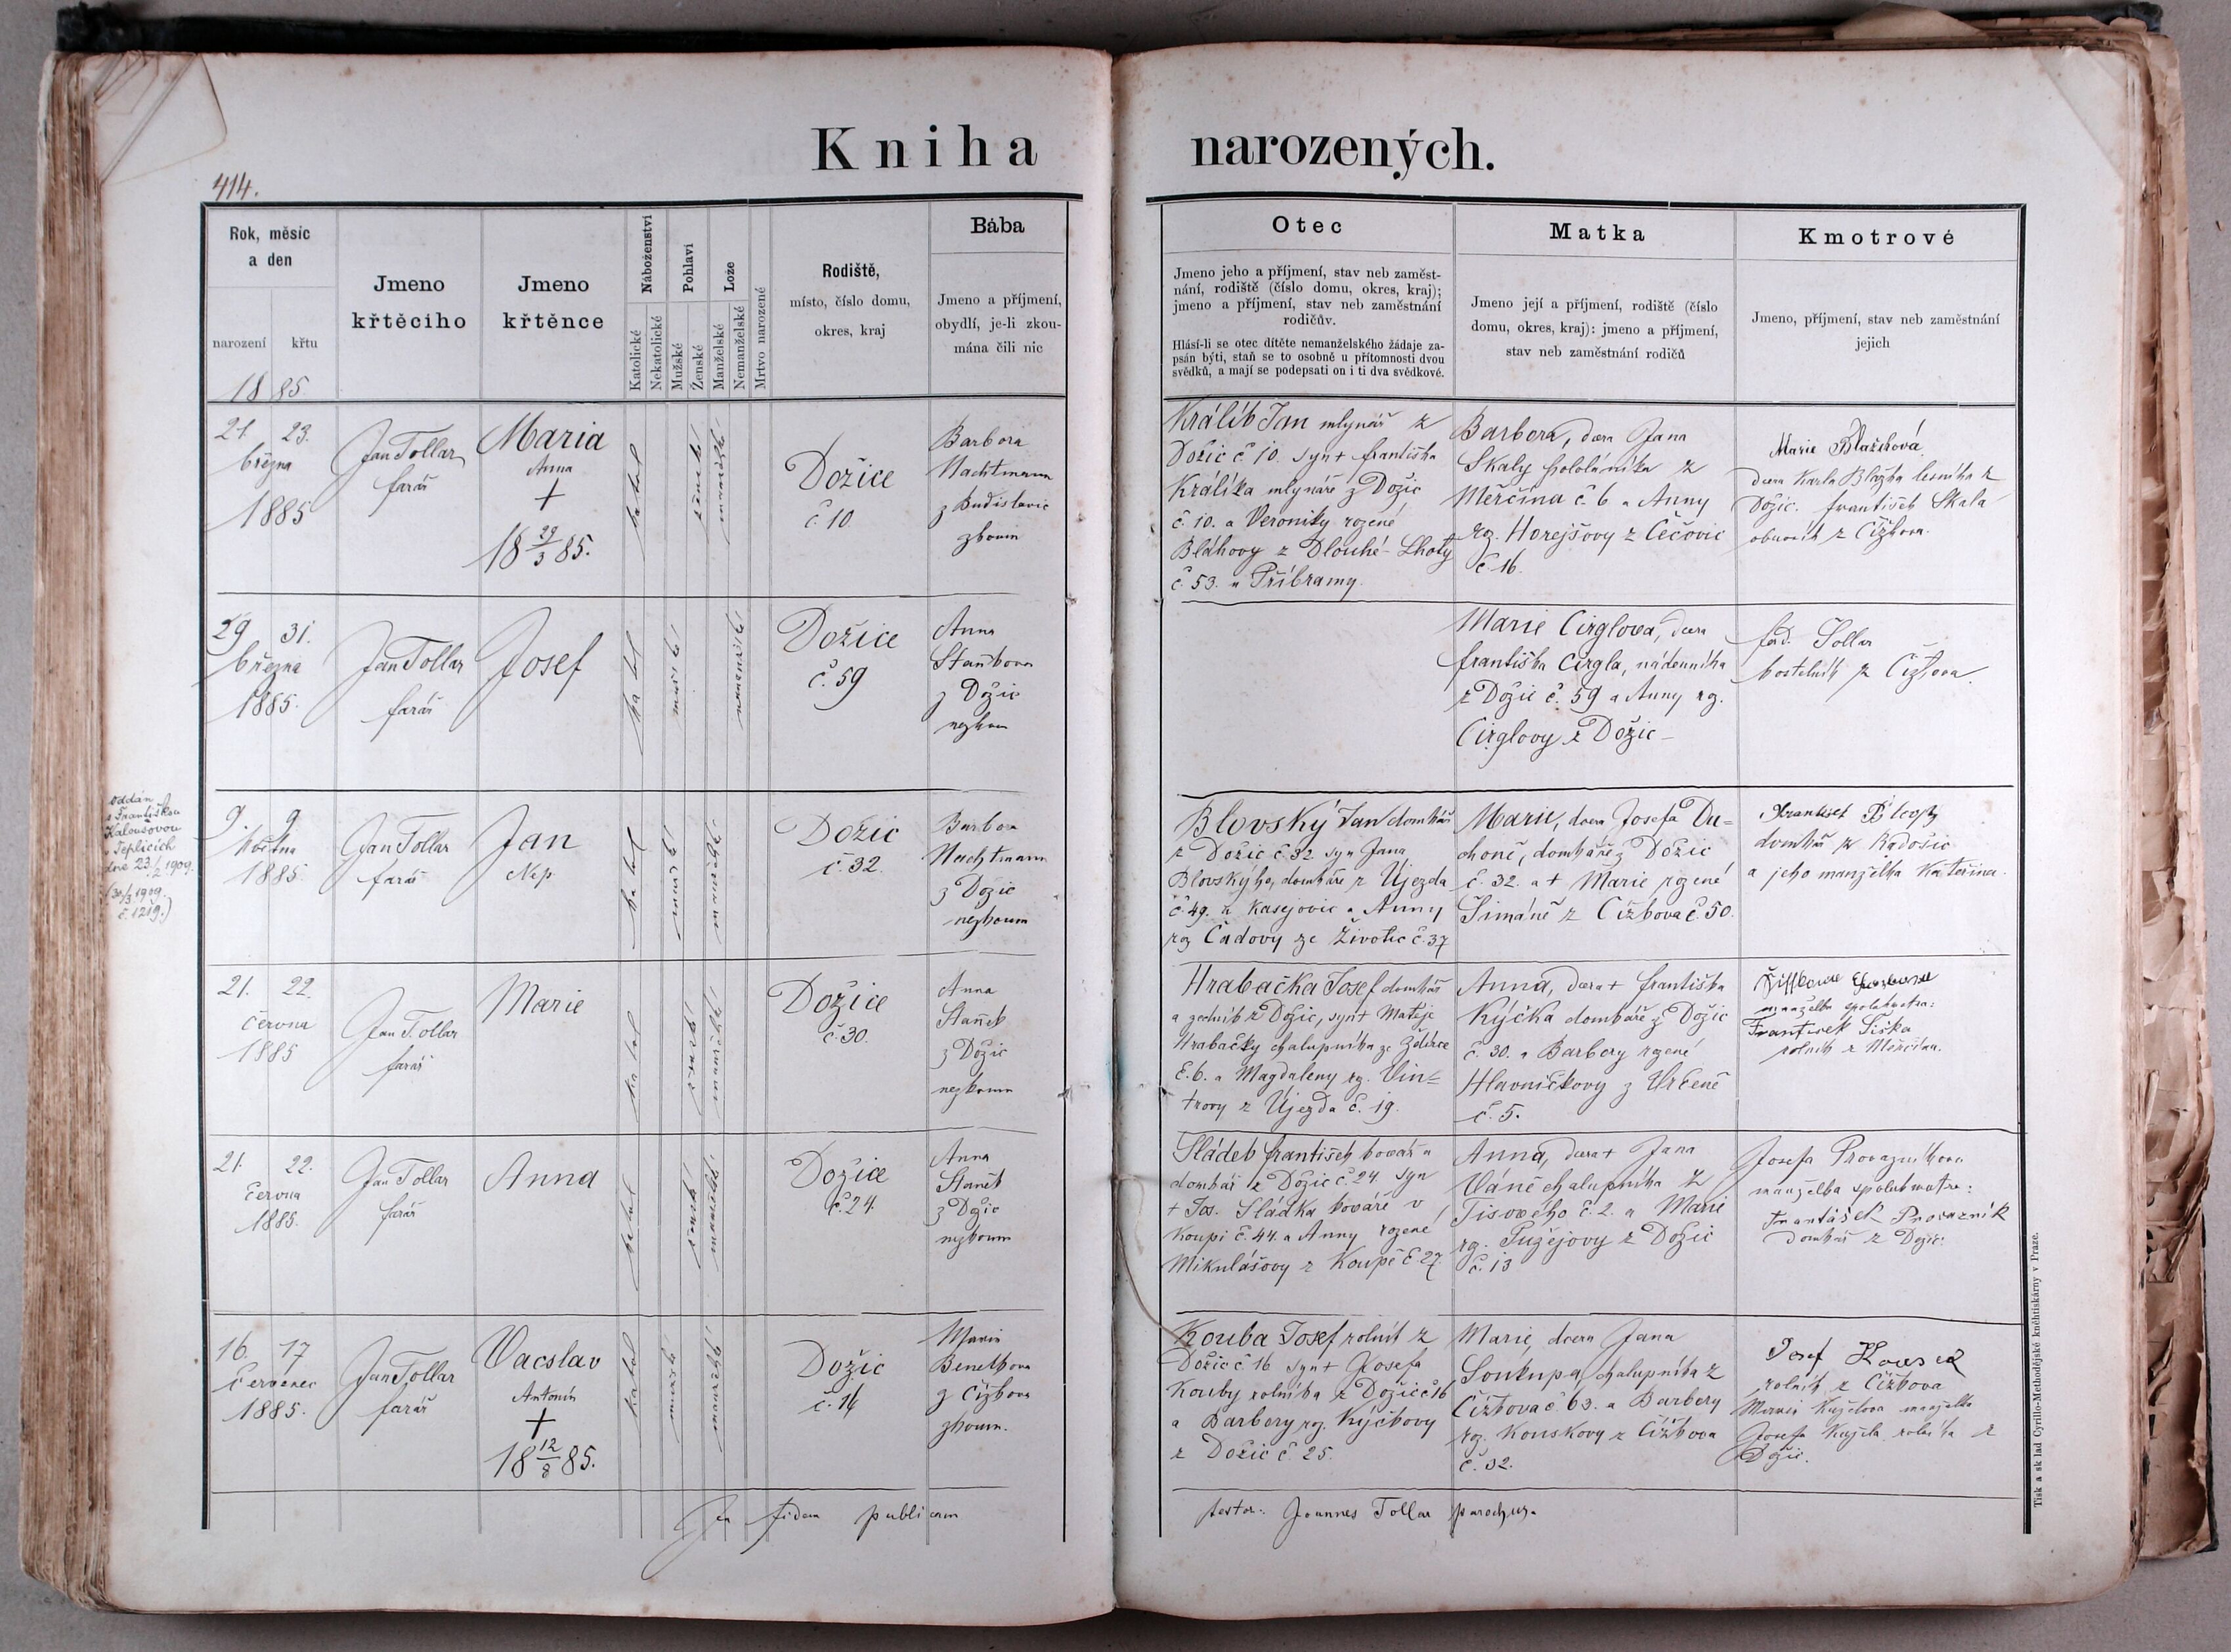 Kniha narozených.
414.
Rok, měsíc
a den
narození
křtu
1885.
Jmeno
křtěcího
Jmeno
křtěnce
Náboženství
Katolické
Nekatolické
Pohlaví
Mužské
Ženské
Lože
Manželské
Nemanželské
Mrtvo narozené
Rodiště,
místo, číslo domu,
okres, kraj
Bába
Jmeno a příjmení,
obydlí, je-li zkou-
mána čili nic
Otec
Jmeno jeho a příjmení, stav neb zaměst-
nání, rodiště (číslo domu, okres, kraj);
jmeno a příjmení, stav neb zaměstnání
rodičův.
Hlásí-li se otec dítěte nemanželského žádaje za-
psán býti, staň se to osobně u přítomnosti dvou
svědků, a mají se podepsati on i ti dva svědkové.
Matka
Jmeno její a příjmení, rodiště (číslo
domu, okres, kraj): jmeno a příjmení,
stav neb zaměstnání rodičů
Kmotrové
Jmeno, příjmení, stav neb zaměstnání
jejich
21. 23.
března
1885
Jan Tollar
farář
Maria
Anna
+
18 29/3 85.
katol
ženské
manželské
Dožice
č. 10.
Barbora
Nachtmann
z Budislavic
zkoum
Králík Jan mlynář z
Dožic č. 10. syn + Františka
Králíka mlynáře z Dožic
č. 10. a Veroniky rozené
Bláhovy z Dlouhé-Lhoty
č. 53. u Příbramy.
Barbora, dcera Jana
Skaly pololáníka z
Měrčína č. 6 a Anny
rz. Horejšovy z Čečovic
č. 16.
Marie Blažková
dcera Karla Blažka lesníka z
Dožic. František Skala
obuvník z Čížkova.
29 31.
března
1885.
Jan Tollar
farář
Josef
katol
mužské
nemanželské
Dožice
č. 59
Anna
Staňkova
z Dožic
nezkoum
Marie Cirglova, dcera
Františka Cirgla, nádenníka
z Dožic č. 59 a Anny rz.
Cirglovy z Dožic
Tollar
kostelník z Čížkova.
oddán
s Františkou
Kaloušovou
v Teplicích
dne 23./2 1909.
(30/3 1909.
č. 1219.)
9. 9
května
1885.
Jan Tollar
farář
Jan
Nep.
katol
mužské
manželské
Dožic
č. 32.
Barbora
Nachtmann
z Dožic
nezkoum
Blovský Jan domkář
z Dožic č. 32 syn Jana
Blovského, domkáře z Újezda
č. 49. u Kasejovic a Anny
rz Čadovy ze Životic č. 37
Marie, dcera Josefa Du-
choně, domkáře z Dožic
č. 32. a + Marie rozené
Šimáně z Čížkova č. 50.
domkář z Radošic
a jeho manželka Kateřina.
21. 22.
června
1885
Jan Tollar
farář
Marie
katol
ženské
manželské
Dožice
č. 30.
Anna
Staňek
z Dožic
nezkoum
Hrabačka Josef domkář
a zedník z Dožic, syn + Matěje
Hrabačky chalupníka ze Ždírce
č. 6. a Magdaleny rz. Vin-
trovy z Újezda č. 19.
Anna, dcera + Františka
Kýčka domkáře z Dožic
č. 30. a Barbory rozené
Hlavničkovy z Určené
č. 5.
manželka spolukmotra:
František Šiška
rolník z Měrčína.
21. 22.
června
1885.
Jan Tollar
farář
Anna
katol
ženské
manželské
Dožice
č. 24.
Anna
Staněk
z Dožic
nezkoum
Sládek František kovář a
domkář z Dožic č. 24. syn
+ Jos. Sládka kováře v
Koupi č. 44. a Anny rozené
Mikulášovy z Koupě č 27.
Anna, dcera + Jana
Váně chalupníka z
Tisového č. 2. a Marie
rz. Pužejovy z Dožic
č. 13
Josefa Provazníkova
manželka spolukmotra:
František Provazník
domkář z Dožic.
16. 17
červenec
1885.
Jan Tollar
farář
Vacslav
Antonín
+
18 12/8 85.
katol
mužské
manželské
Dožic
č. 16
Marie
Benetkova
z Čížkova
zkoum.
Kouba Josef rolník z
Dožic č 16 syn + Josefa
Kouby rolníka z Dožic č 16
a Barbory roz. Kýčkovy
z Dožic č. 25.
Marie, dcera Jana
Soukupa, chalupníka z
Čížkova č. 63. a Barbory
rz. Kouskovy z Čížkova
č. 32.
Josef Kousek
rolník z Čížkova
manželka
Josefa rolníka z
Dožic.
In fidem publicam
testor: Joannes Tollar parochus.
Tisk a sklad Cyrillo-Methodějské knihtiskárny v Praze.